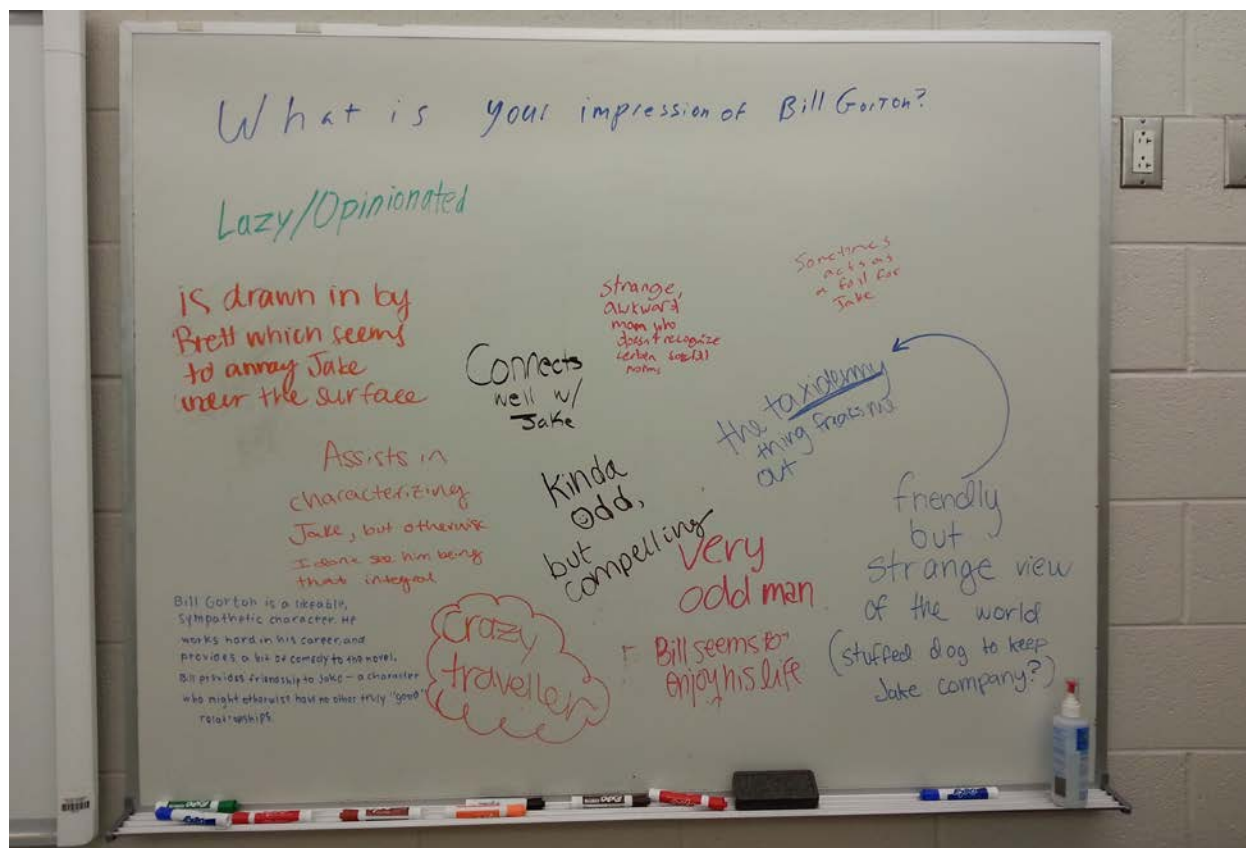 What is your impression of Bill Gorton?
Lazy/Opinionated
is drawn in by
Brett which seems
to annoy Jake
under the surface
Connects
well w/
Jake
strange,
awkward
man who
doesn't recognize
social
norms
Sometimes
acts as
a foil for
Jake
the taxidermy
thing freaks me
out
Assists in
characterizing
Jake, but otherwise
I don't see him being
that integral
Kinda
odd,
but
compelling
very
odd man
friendly
but
strange view
of the world
(stuffed dog to keep
Jake company?)
Bill Gorton is a likeable,
sympathetic character. He
works hard in his career, and
provides a bit of comedy to the novel.
Bill provides friendship to Jake – a character
who might otherwise have no other truly "good"
relationships.
Crazy
traveller
Bill seems to
enjoy his life